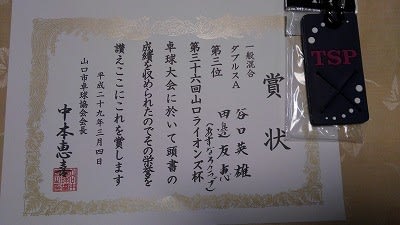 賞状
一般混合
ダブルスA
第三位
谷口英雄
田邉友恵
(あすなろクラブ)
第三十六回山口ライオンズ杯
卓球大会に於いて頭書の
成績を収められたのでその栄誉を
讃えここにこれを賞します
平成二十九年三月四日
山口市卓球協会会長
中本恵喜
TSP